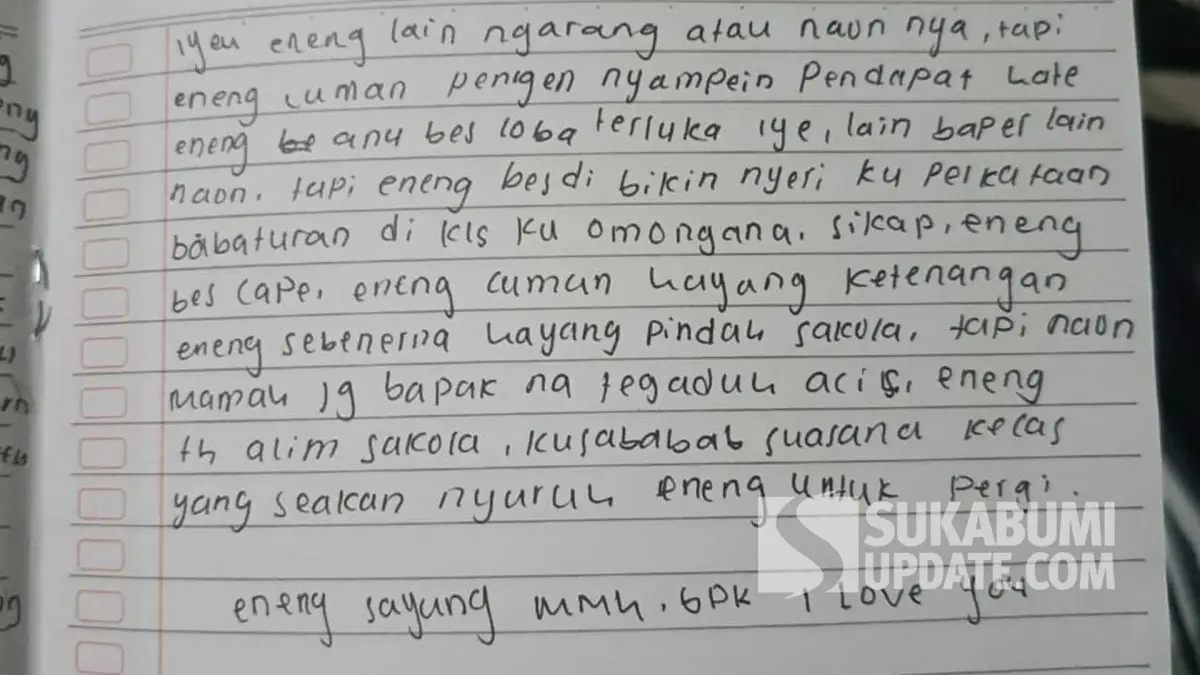 iyeu eneng lain ngarang atau naon nya, tapi
eneng cuman pengen nyampein pendapat hate
eneng be anu bes loba terluka iye, lain baper lain
naon. tapi eneng bes di bikin nyeri ku perkataan
babaturan di kls ku omongana. sikap, eneng
bes cape, eneng cuman hayang ketenangan
eneng sebenerna hayang pindah sakola, tapi naon
mamah jg bapak na tegaduh acis, eneng
th alim sakola, kusababab suasana kelas
yang seakan nyuruh eneng untuk pergi.
eneng sayang mmh, bpk i love you
SUKABUMI
UPDATE.COM